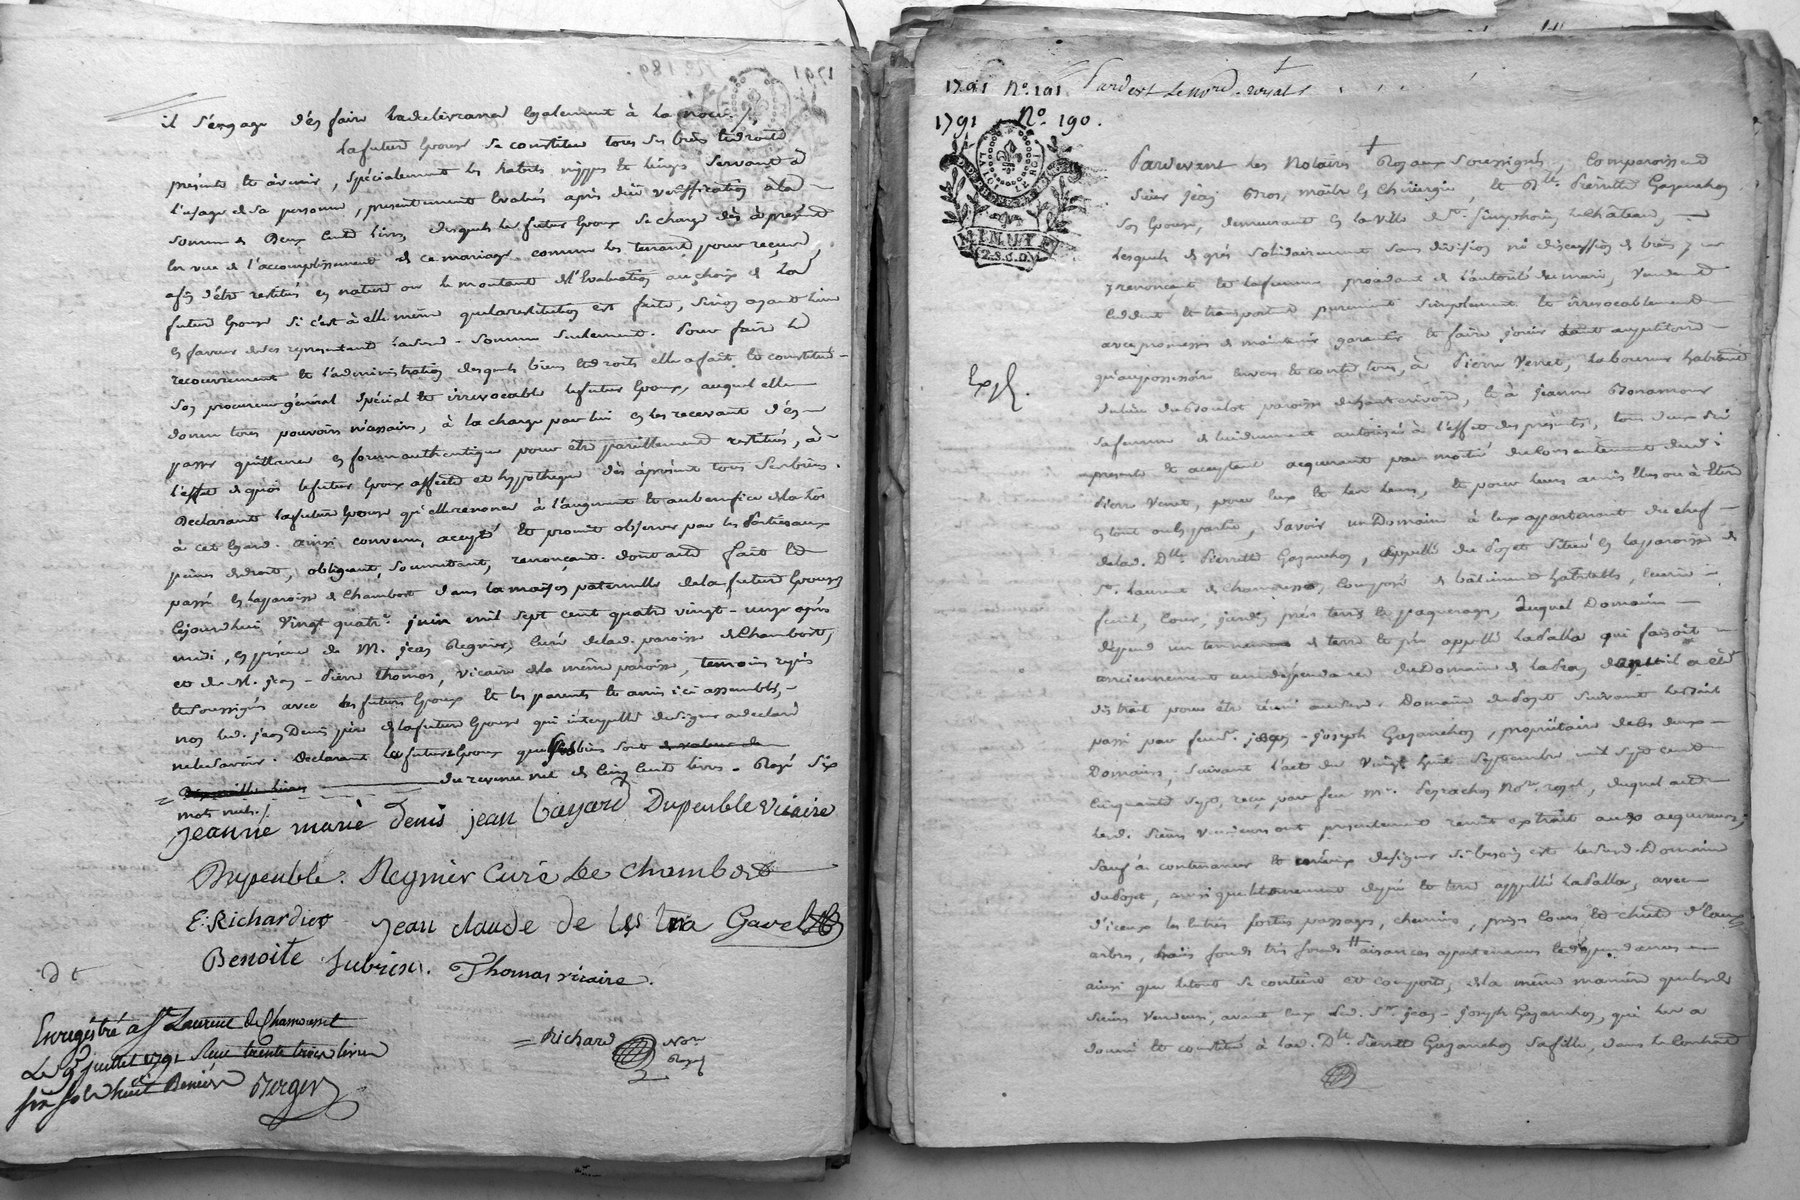 il s'engage d'en faire la delivrance egalement à la noce.
la future Epouse se constitue tous ses biens et droits
présents et à venir, spécialement les habits nippes et linges servant à
l'usage de sa personne, presentement évalués après due vérification à la
somme de Deux cent livres, desquels le futur Epoux se charge dès à présent
en vue de l'accomplissement de ce mariage, comme les tenant pour reçus,
afin d'être restitués en nature ou le montant de l'Evaluation au choix de lad.
future Epouse si c'est à elle même que la restitution est faite, sinon ayant lieu
en faveur de ses representants lad. somme seulement. Pour faire le
recouvrement et l'administration desquels biens et droits elle a fait et constitué
son procureur général spécial et irrevocable le futur Epoux, auquel elle
donne tous pouvoirs nécessaires, à la charge par lui en les recevant d'en
passer quittance en forme authentique pour être pareillement restitués, à
l'effet de quoi le futur Epoux affecte et hypothèque dès à présent tous ses biens.
Declarant la future Epouse qu'elle renonce à l'augment et au benefice de la loi
à cet égard. ainsi convenu, accepté et promis observer par les Parties aux
peines de droit, obligeant, soumettant, renonçant. dont acte fait et
passé en la paroisse de Chambost dans la maison paternelle de la future Epouse
cejourd'hui vingt quatre juin mil sept cent quatre vingt-onze après
midi, en présence de M. jean Regnier, curé de lad. paroisse de Chambost,
et de M. jean-Pierre Thomas, vicaire de la même paroisse, temoins requis
et soussignés avec les futurs Epoux et les parents et amis ici assemblés,
non led. jean Denis père de la future Epouse qui interpellé de signer a declaré
ne le savoir. Declarant le futur Epoux que ses biens sont
du revenu net de cinq cents livres. Rayé six
mots nuls./.
jeanne marie Denis jean Bayard Dupeuble Vicaire
Dupeuble. Regnier Curé de Chambost
E: Richardier jean claude de Gavel
Benoite Subrin. Thomas vicaire.
Enregistré à St. Laurent de Chamousset
Le 9 juillet 1791 Reçu trente trois livres
six sols huit Deniers Berger
Richard Nore
Royal
1791 No. 191. Pardevt Le nord. royal
1791 No. 190.
LA LOI LE ROI
MINUTE
2.S.6.D.
Exp.
Pardevant les Notaires Royaux soussignés, Comparoissent
sieur jean Gros, maitre en Chirurgie, et Dlle. Pierrette Gazanchon
son Epouse, demeurant en la ville de St. Simphorien le Château,
Lesquels de gré solidairement sans division ni discussion de biens, y
renonçant et la femme procédant de l'autorité du mari, vendent
cèdent et transportent purement simplement et irrévocablement
avec promesses de maintenir, garantir et faire jouir tant au petitoire
qu'au possessoire envers et contre tous, à Pierre Venet, laboureur habitant
du lieu du Boulot paroisse de, et à jeanne Bonamour
sa femme de lui dument autorisée à l'effet des présentes, tous deux ici
presents et acceptant acquerant par moitié du consentement dud.
Pierre Venet, pour eux et les leurs, et pour leurs amis élus ou à élire
en tout ou en partie, savoir un Domaine à eux appartenant du chef
de lad. Dlle. Pierrette Gazanchon, appellé du Pozet situé en la paroisse de
St. Laurent de Chamousset, Composé de bâtiments habitables, écurie
fenil, Cour, jardin, prés terres et paquerages, duquel Domaine
dépend un tenement de terre et pré appellé La Salla qui faisoit
anciennement une dépendance du Domaine de la, dont il a été
distrait pour être réuni aud. Domaine du Pozet suivant le bail
passé par feu Sr. jean-joseph Gazanchon, propriétaire de ces deux
Domaines, suivant l'acte du vingt huit Septembre mil sept cent
cinquante sept, reçu par feu Me. Peyrachon Nore. royal, duquel acte
lesd. sieurs vendeurs ont presentement remis extrait auxd. acquereurs,
sauf à contenance et mieux désigner si besoin est lesd. Domaine
du Pozet, ainsi que le tenement de pré et terre appellé La Salla, avec
d'iceux les entrées sorties passages, chemins, prises Cours et chûte d'Eaux
arbres, haies fonds très fonds aisances appartenances et dépendances
ainsi que le tout se contient et comporte, de la même manière que lesd.
sieurs vendeurs, avant eux led. Sr. jean-joseph Gazanchon, qui les a
donné et constitué à lad. Dlle. Pierrette Gazanchon sa fille, dans le Contrat